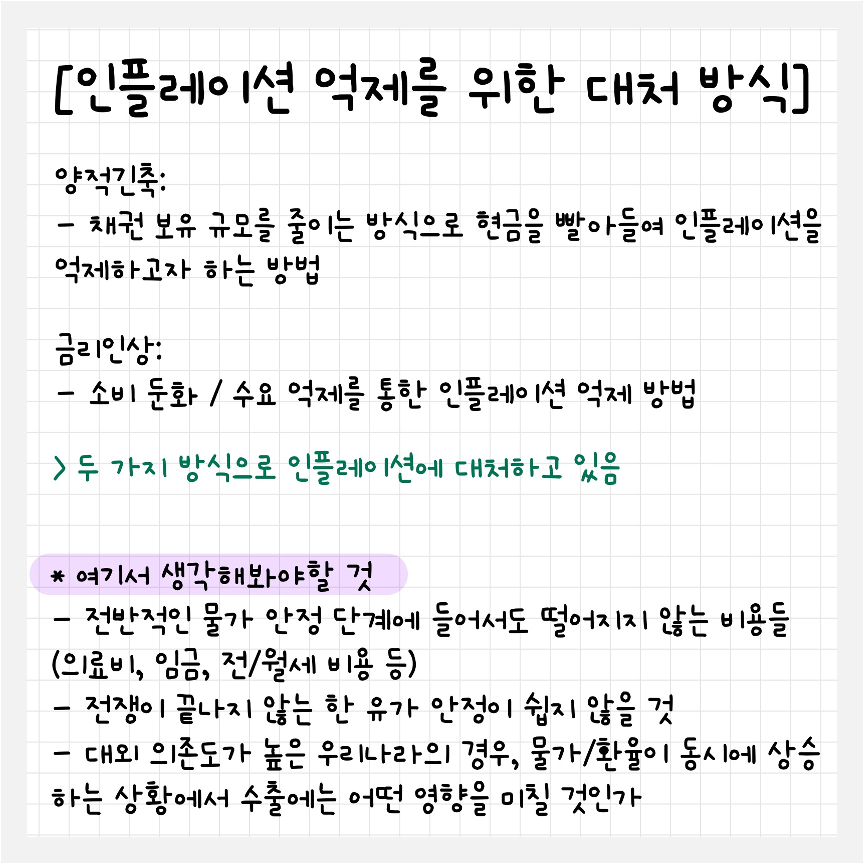 [인플레이션 억제를 위한 대처 방식]
양적긴축:
- 채권 보유 규모를 줄이는 방식으로 현금을 빨아들여 인플레이션을
억제하고자 하는 방법
금리인상:
- 소비 둔화 / 수요 억제를 통한 인플레이션 억제 방법
> 두 가지 방식으로 인플레이션에 대처하고 있음
* 여기서 생각해봐야할 것
- 전반적인 물가 안정 단계에 들어서도 떨어지지 않는 비용들
(의료비, 임금, 전/월세 비용 등)
- 전쟁이 끝나지 않는 한 유가 안정이 쉽지 않을 것
- 대외 의존도가 높은 우리나라의 경우, 물가/환율이 동시에 상승
하는 상황에서 수출에는 어떤 영향을 미칠 것인가